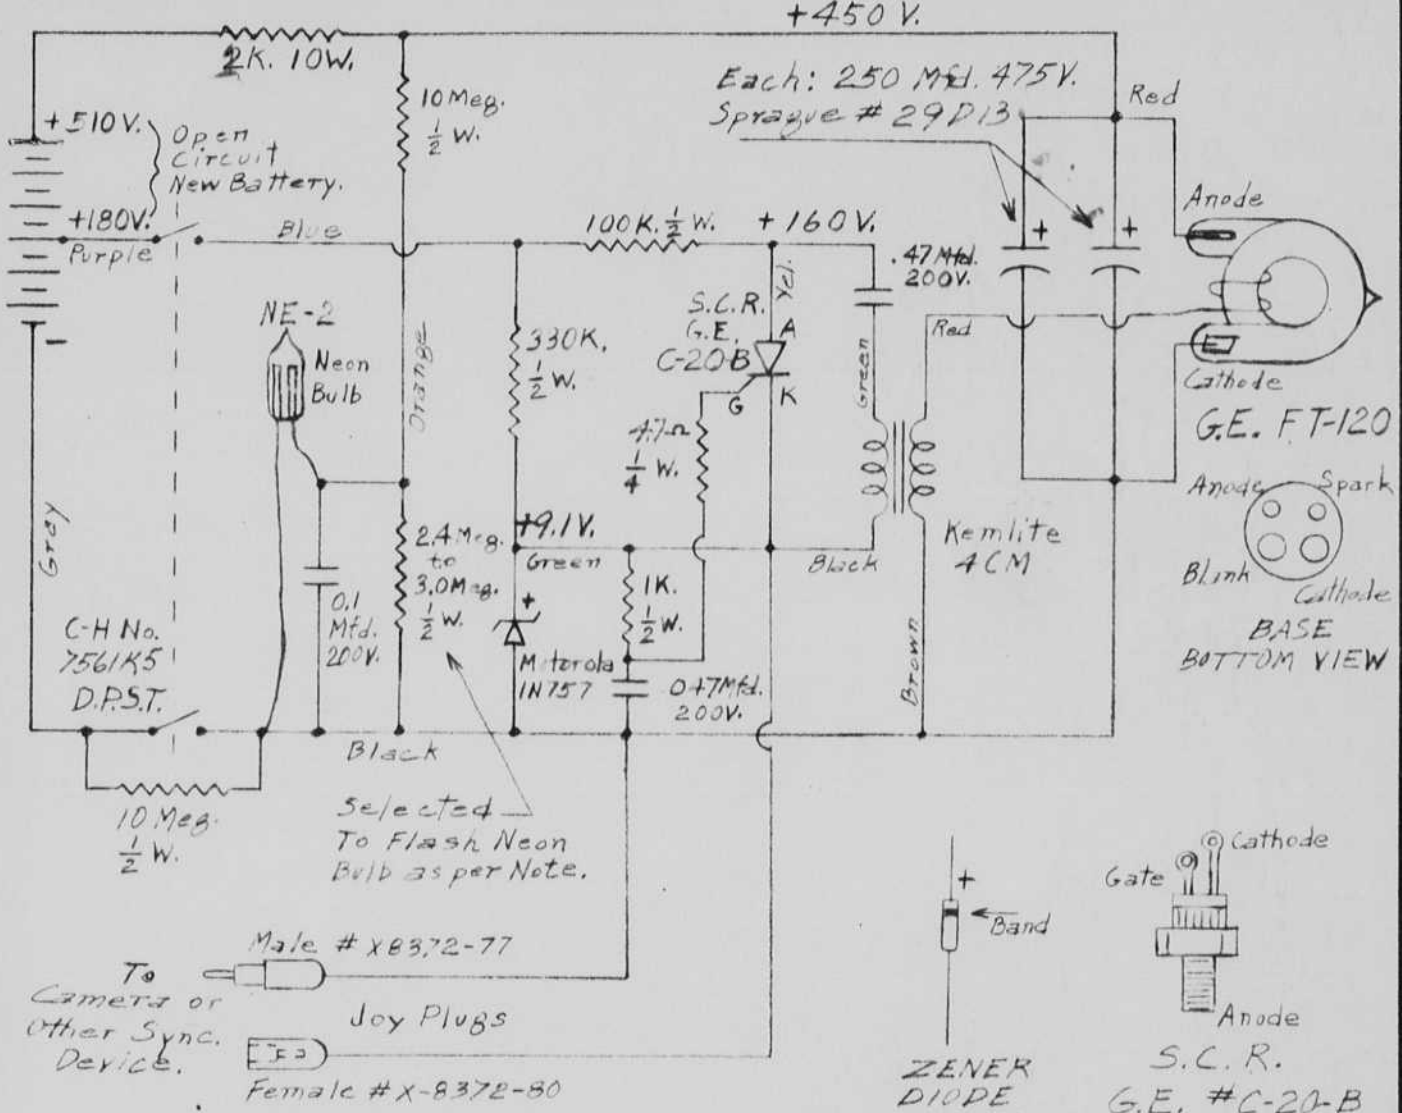 +450 V.
2K. 10W.
Each: 250 Mfd. 475V.
Sprague # 29D13
10 Meg.
1/2 W.
Red
+510V.
Open
Circuit
New Battery.
+180V.
Purple
Blue
100K. 1/2 W.
+ 160V.
Anode
+
+
.47 Mfd.
200V.
Yel.
NE-2
Neon
Bulb
Orange
330K.
1/2 W.
S.C.R.
G.E.
C-20-B
A
K
G
Green
Red
Cathode
G.E. FT-120
-
4.7Ω
1/4 W.
Anode
Spark
Blink
Cathode
BASE
BOTTOM VIEW
Gray
2.4 Meg.
to
3.0 Meg.
1/2 W.
+9.1V.
Green
1K.
1/2 W.
Black
Kemlite
4CM
0.1
Mfd.
200V.
+
Motorola
1N757
.047Mfd.
200V.
Brown
C-H No.
7561K5
D.P.S.T.
Black
10 Meg.
1/2 W.
Selected
To Flash Neon
Bulb as per Note.
Male # X8372-77
To
Camera or
Other Sync.
Device.
Joy Plugs
Female # X-8372-80
+
Band
ZENER
DIODE
Gate
Cathode
Anode
S.C.R.
G.E. #C-20-B